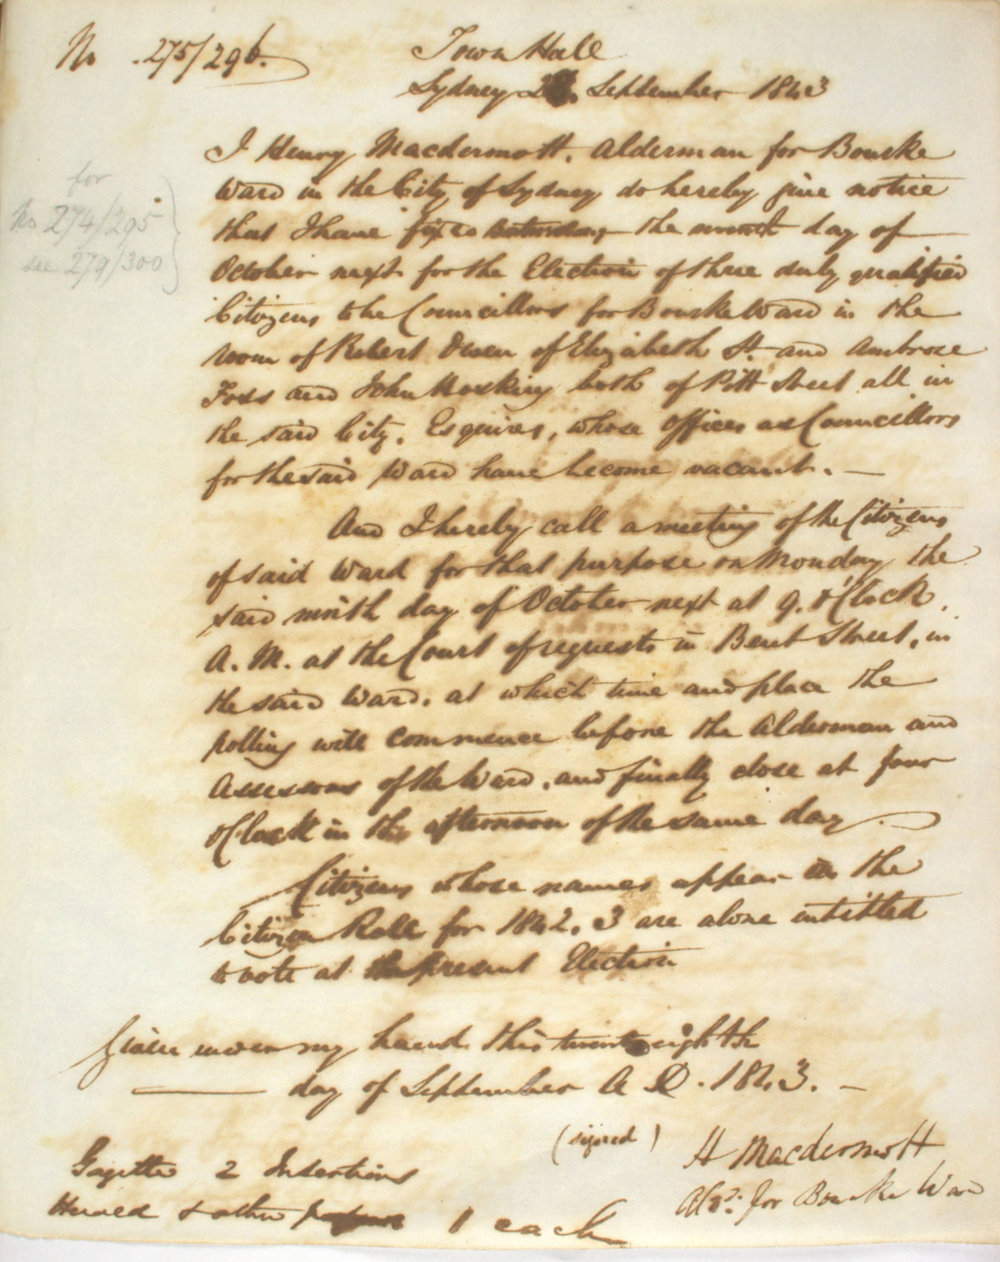 No .275/296.
Town Hall
Sydney September 1843
for
No 274/295
see 279/300
I Henry Macdermott. Alderman for Bourke
Ward in the City of Sydney do hereby give notice
that I have fixed the day of
October next for the Election of three duly qualified
Citizens to be Councillors for Bourke Ward in the
room of Robert Owen of Elizabeth St. and Ambrose
Foss and John Hosking both of Pitt Street all in
the said City. Esquires, whose Offices as Councillors
for the said Ward have become vacant. —
And I hereby call a meeting of the Citizens
of said Ward for that purpose on Monday the
said ninth day of October next at 9. o'Clock.
A. M. at the Court of requests in Bent Street, in
the said Ward. at which time and place the
polling will commence before the Alderman and
Assessors of the Ward. and finally close at four
o'Clock in the afternoon of the same day.
Citizens whose names appear in the
Citizen Roll for 1842. 3 are alone intitled
to vote at the present Election
Given under my hand this twenty eighth
— day of September A D. 1843. —
(signed)
H Macdermott
Ald: for Bourke Ward
Gazette 2 Insertions
Herald & other 1 each